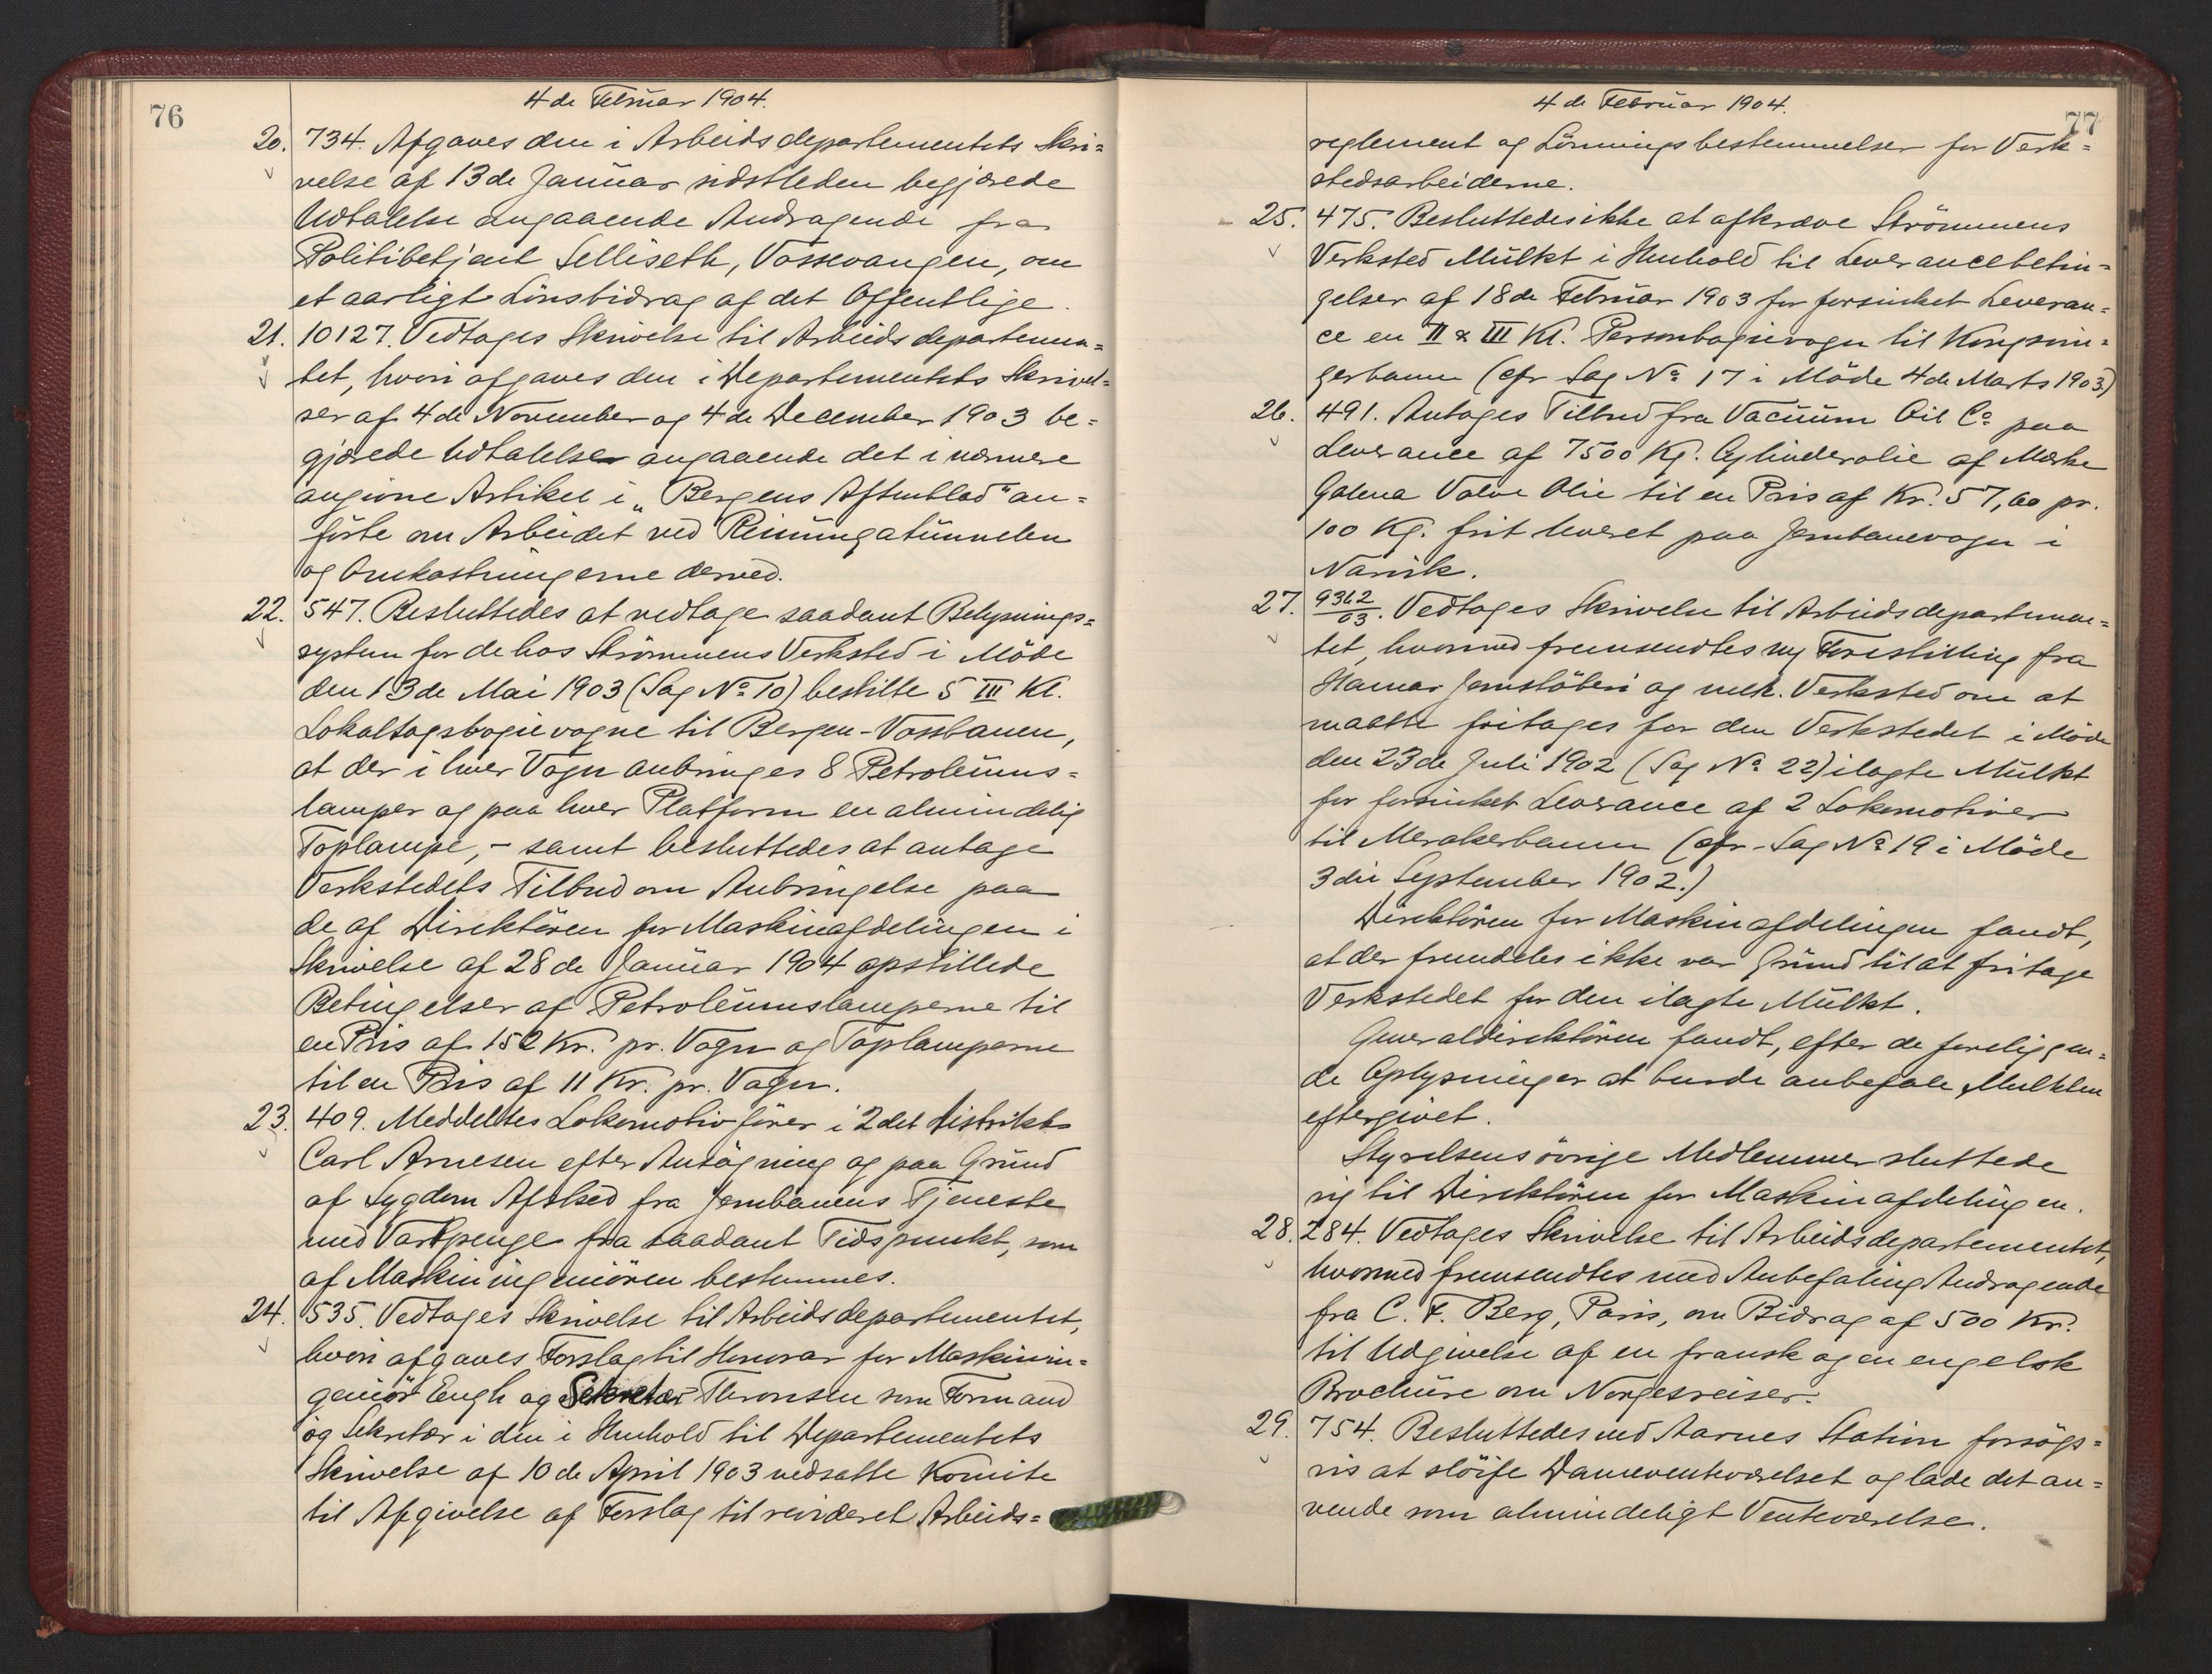 76
4de Februar 1904.
20. 734. Afgaves den i Arbeidsdepartementets Skri=
velse af 13de Januar sidstleden begjærede
Udtalelse angaaende Andragende fra
Politibetjent Selliseth, Vossevangen, om
et aarligt Lönsbidrag af det Offentlige.
21. 10127. Vedtages Skrivelse til Arbeidsdepartemen=
tet, hvori afgaves den i Departementets Skrivel=
ser af 4de November og 4de December 1903 be=
gjærede Udtalelse angaaende det i nærmere
angivne Artikel i „Bergens Aftenblad“ an=
förte om Arbeidet ved Reinungatunnelen
og Omkostningerne derved.
22. 547. Besluttedes at vedtage saadant Belysnings=
system for de hos Strömmens Verksted i Möde
den 13de Mai 1903 (Sag No 10) bestilte 5 III Kl.
Lokaltogsbogievogne til Bergen-Vossbanen,
at der i hver Vogn anbringes 8 Petroleums=
lamper og paa hver Platform en almindelig
Toplampe, - samt besluttedes at antage
Verkstedets Tilbud om Anbringelse paa
de af Direktören for Maskinafdelingen i
Skrivelse af 28de Januar 1904 opstillede
Betingelser af Petroleumslamperne til
en Pris af 152 Kr. pr. Vogn og Toplamperne
til en Pris af 11 Kr. pr. Vogn.
23. 409. Meddeltes Lokomotivförer i 2det Distrikt
Carl Arnesen efter Ansögning og paa Grund
af Sygdom Afsked fra Jernbanens Tjeneste
med Vartpenge fra saadant Tidspunkt, som
af Maskiningeniören bestemmes.
24. 535. Vedtages Skrivelse til Arbeidsdepartementet,
hvori afgaves Forslag til Honorar for Maskinin=
geniör Engh og Sekretær Thronsen som Formand
og Sekretær i den i Henhold til Departementets
Skrivelse af 10de April 1903 nedsatte Komite
til Afgivelse af Forslag til revideret Arbeids=
77
4de Februar 1904.
reglement og Lönningsbestemmelser for Verk=
stedsarbeiderne.
25. 475. Besluttedes ikke at afkræve Strömmens
Verksted Mulkt i Henhold til Leverancebetin=
gelser af 18de Februar 1903 for forsinket Leveran=
ce en II & III Kl. Personbogievogn til Kongsvin=
gerbanen (cfr Sag No 17 i Möde 4de Marts 1903)
26. 491. Antages Tilbud fra Vacuum Oil Co paa
Leverance af 7500 Kg. Cylinderolie af Mærke
Galena Valve Olie til en Pris af Kr. 57,60 pr.
100 Kg. frit leveret paa Jernbanevogn i
Narvik.
27. 9362/03. Vedtages Skrivelse til Arbeidsdepartemen=
tet, hvormed fremsendtes ny Forestilling fra
Hamar Jernstöberi og mek. Verksted om at
maatte fritages for den Verkstedet i Möde
den 23de Juli 1902 (Sag No 22) ilagte Mulkt
for forsinket Leverance af 2 Lokomotiver
til Merakerbanen (cfr. Sag No 19 i Möde
3die September 1902.)
Direktören for Maskinafdelingen fandt,
at der fremdeles ikke var Grund til at fritage
Verkstedet for den ilagte Mulkt.
Generaldirektören fandt, efter de foreliggen=
de Oplysninger at burde anbefale Mulkten
eftergivet.
Styrelsens övrige Medlemmer sluttede
sig til Direktören for Maskinafdelingen.
28. 284. Vedtages Skrivelse til Arbeidsdepartementet,
hvormed fremsendtes med Anbefaling Andragende
fra C. F. Berg, Paris, om Bidrag af 500 Kr.
til Udgivelse af en fransk og en engelsk
Brochure om Norgesreiser.
29. 754. Besluttedes ved Aarnes Station forsögs=
vis at slöife Dameventeværelset og lade det an=
vende som almindeligt Venteværelse.